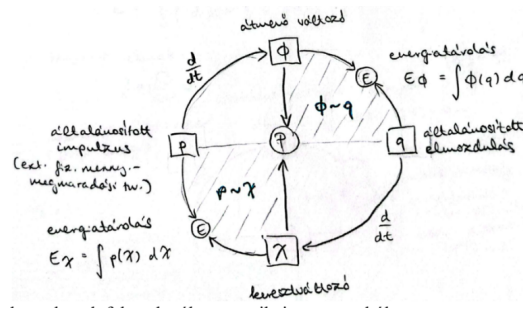 átmenő változó
ϕ
d/dt
energiatárolás
E
Eϕ = ∫ϕ(q) dq
ϕ~q
általánosított
impulzus
(ext. fiz. menny. –
megmaradási tv.)
p
P
q
általánosított
elmozdulás
p~χ
energiatárolás
E
Eχ = ∫p(χ) dχ
d/dt
χ
keresztváltozó